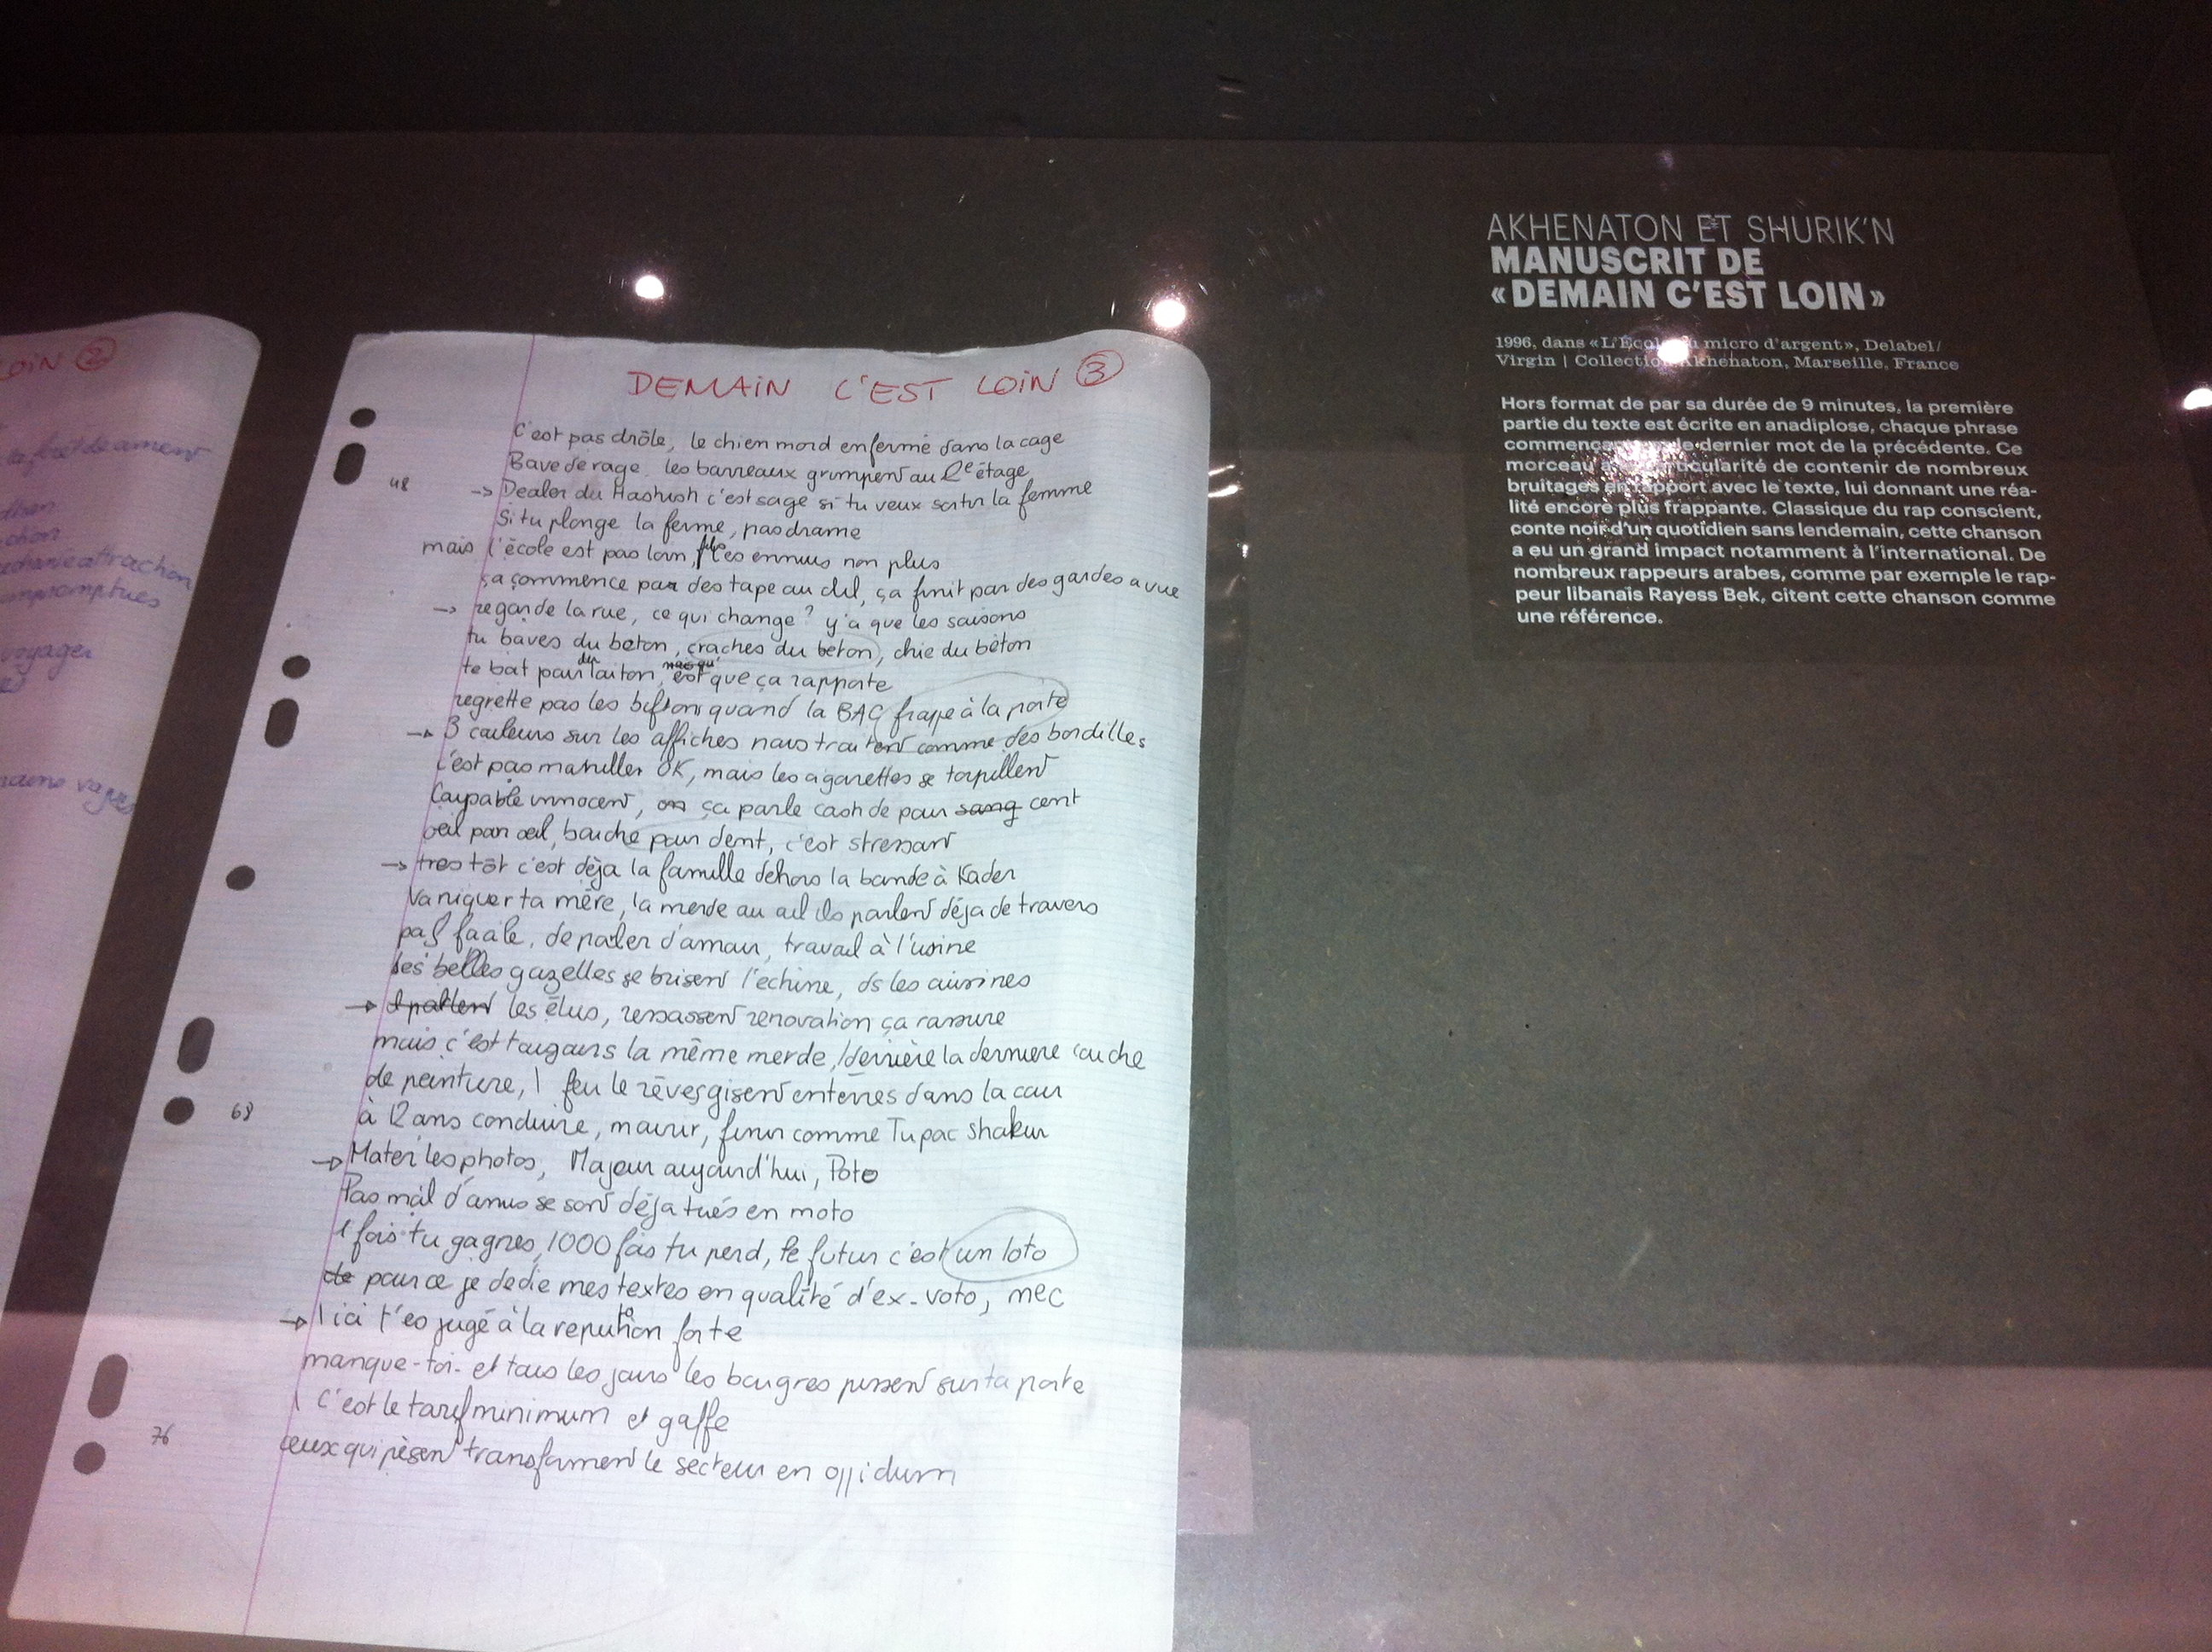 OIN ②
voyager
DEMAIN C'EST LOIN ③
C'est pas drôle, le chien mord enfermé dans la cage
Bave de rage, les barreaux grimpent au 2e étage
48
-> Dealer du Hashish c'est sage si tu veux sortir la femme
Si tu plonge la ferme, pas drame
mais l'école est pas loin, les ennuis non plus
ça commence par des tape au cul, ça finit par des gardes a vue
-> regarde la rue, ce qui change? y'a que les saisons
tu baves du beton, craches du beton, chie du béton
te bat pour du laiton, est que ça rapporte
regrette pas les biftons quand la BAC frappe à la porte
-> 3 couleurs sur les affiches nous traitent comme des bordilles
c'est pas manuller OK, mais les cigarettes se torpillent
Coupable innocent, on ça parle cash de pour sang cent
œil pour œil, bouche pour dent, c'est stressant
-> tres tôt c'est déja la famille dehors la bande à Kader
Va niquer ta mère, la merde au cul ils parlent déja de travers
pas facile, de parler d'amour, travail à l'usine
les belles gazelles se brisent l'échine, ds les cuisines
-> les élus, ressassent renovation ça rassure
mais c'est toujours la même merde, /derrière la derniere couche
de peinture, | feu le rêves gisent enterrés dans la cour
à 12 ans conduire, mourir, finir comme Tupac Shakur
68
-> Mater les photos, Majeur aujourd'hui, Poto
Pas mal d'amis se sont déja tués en moto
1 fois tu gagnes, 1000 fois tu perd, le futur c'est un loto
de pour ce je dedie mes textes en qualité d'ex-voto, mec
-> | ici t'es jugé à la reputation forte
manque-toi- et tous les jours les bougres pissent sur ta porte
| c'est le tarif minimum et gaffe
76
ceux qui pèsent transforment le secteur en oppidum
AKHENATON ET SHURIK'N
MANUSCRIT DE
« DEMAIN C'EST LOIN »
1996, dans «L'École micro d'argent», Delabel/
Virgin | Collection Akhenaton, Marseille, France
Hors format de par sa durée de 9 minutes, la première
partie du texte est écrite en anadiplose, chaque phrase
commençant le dernier mot de la précédente. Ce
morceau a particularité de contenir de nombreux
bruitages en rapport avec le texte, lui donnant une réa-
lité encore plus frappante. Classique du rap conscient,
conte noir d'un quotidien sans lendemain, cette chanson
a eu un grand impact notamment à l'international. De
nombreux rappeurs arabes, comme par exemple le rap-
peur libanais Rayess Bek, citent cette chanson comme
une référence.